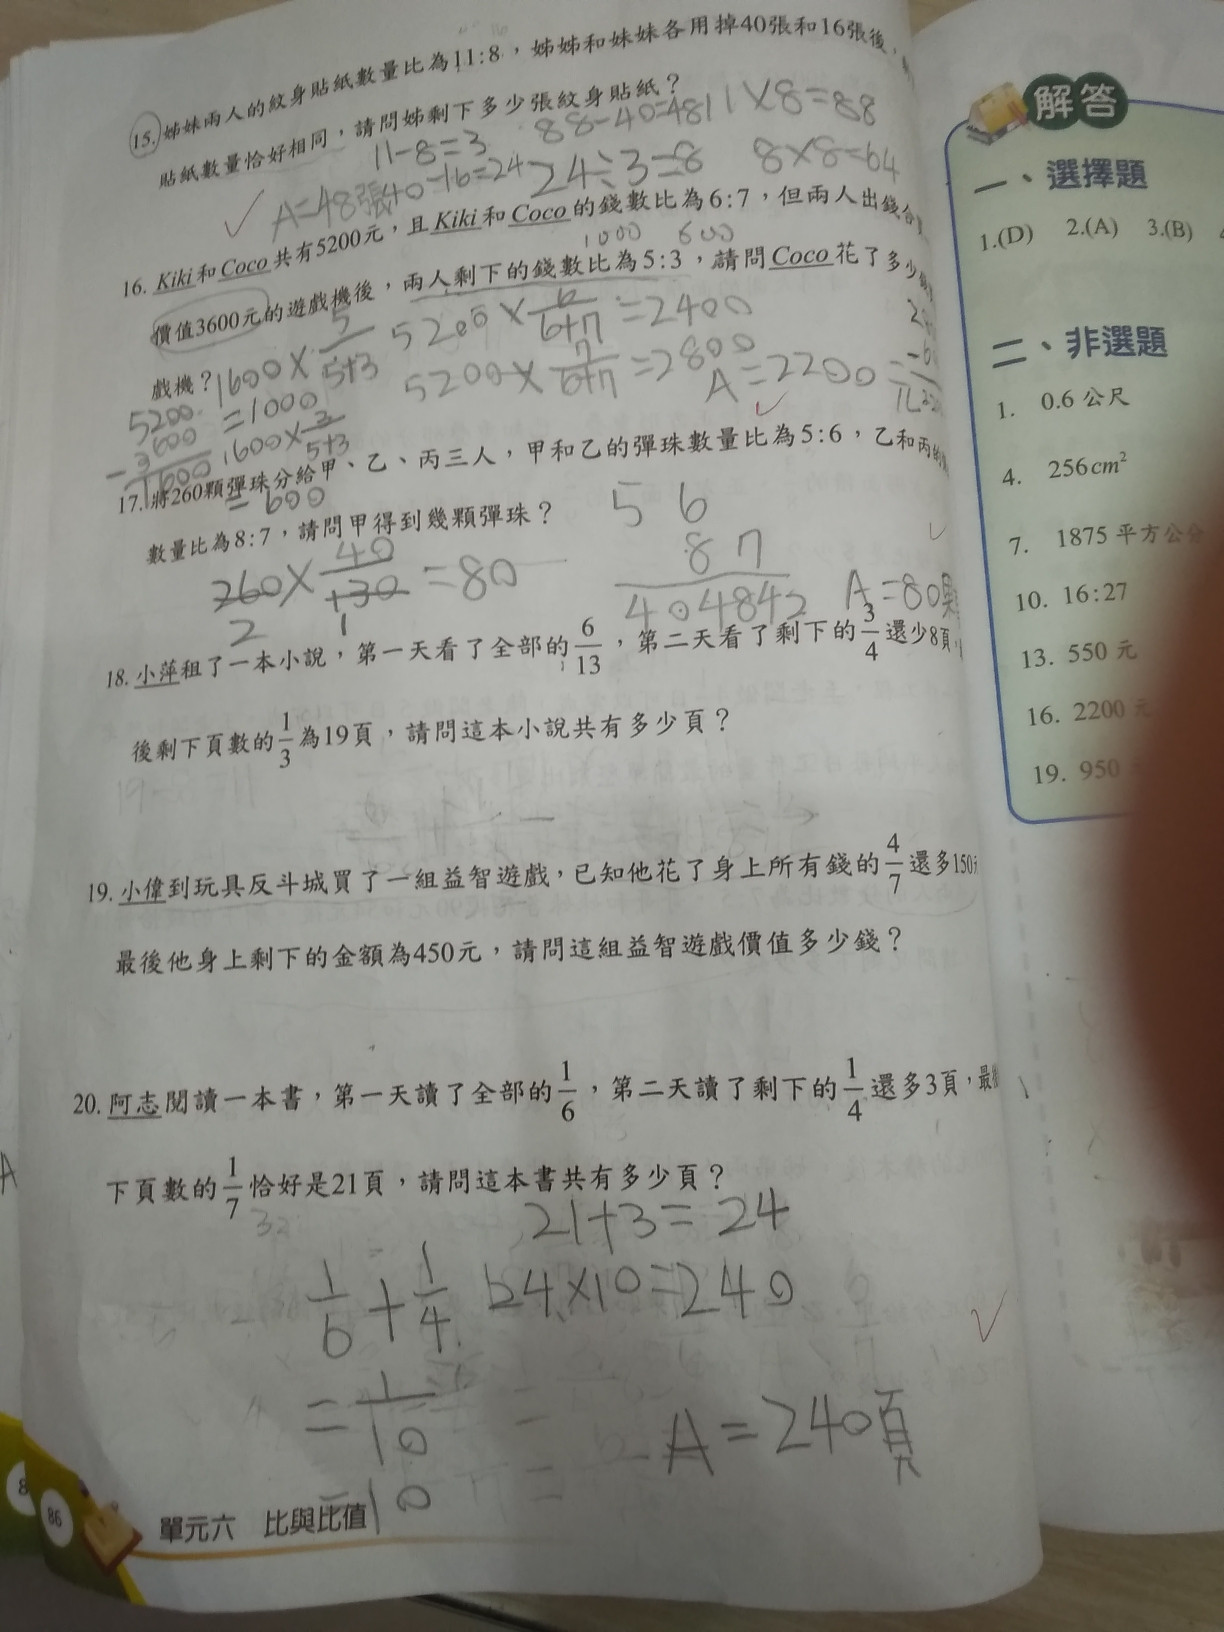 15. 姊妹兩人的紋身貼紙數量比為11:8,姊姊和妹妹各用掉40張和16張後,
貼紙數量恰好相同,請問姊剩下多少張紋身貼紙?
11-8=3 88-40=48 11×8=88
A=48張 40-16=24 24÷3=8 8×8=64
16. Kiki和Coco共有5200元,且Kiki和Coco的錢數比為6:7,但兩人出錢合
1000 600
價值3600元的遊戲機後,兩人剩下的錢數比為5:3,請問Coco花了多少
戲機?
1600×5/5+3 5200×6/6+7=2400
=1000 5200×7/6+7=2800 A=2200
5200
-3600
1600
1600×3/5+3
=600
17. 將260顆彈珠分給甲、乙、丙三人,甲和乙的彈珠數量比為5:6,乙和丙的
數量比為8:7,請問甲得到幾顆彈珠?
260×40/130=80
2 1
5 6
8 7
40 48 42 A=80顆
18. 小萍租了一本小說,第一天看了全部的6/13,第二天看了剩下的3/4還少8頁,
後剩下頁數的1/3為19頁,請問這本小說共有多少頁?
19. 小偉到玩具反斗城買了一組益智遊戲,已知他花了身上所有錢的4/7還多150元
最後他身上剩下的金額為450元,請問這組益智遊戲價值多少錢?
20. 阿志閱讀一本書,第一天讀了全部的1/6,第二天讀了剩下的1/4還多3頁,最
下頁數的1/7恰好是21頁,請問這本書共有多少頁?
21+3=24
1/6+1/4 24×10=240
=1/10
=10
A=240頁
86
單元六 比與比值
解答
一、選擇題
1.(D) 2.(A) 3.(B)
二、非選題
1. 0.6公尺
4. 256cm²
7. 1875平方公分
10. 16:27
13. 550元
16. 2200元
19. 950